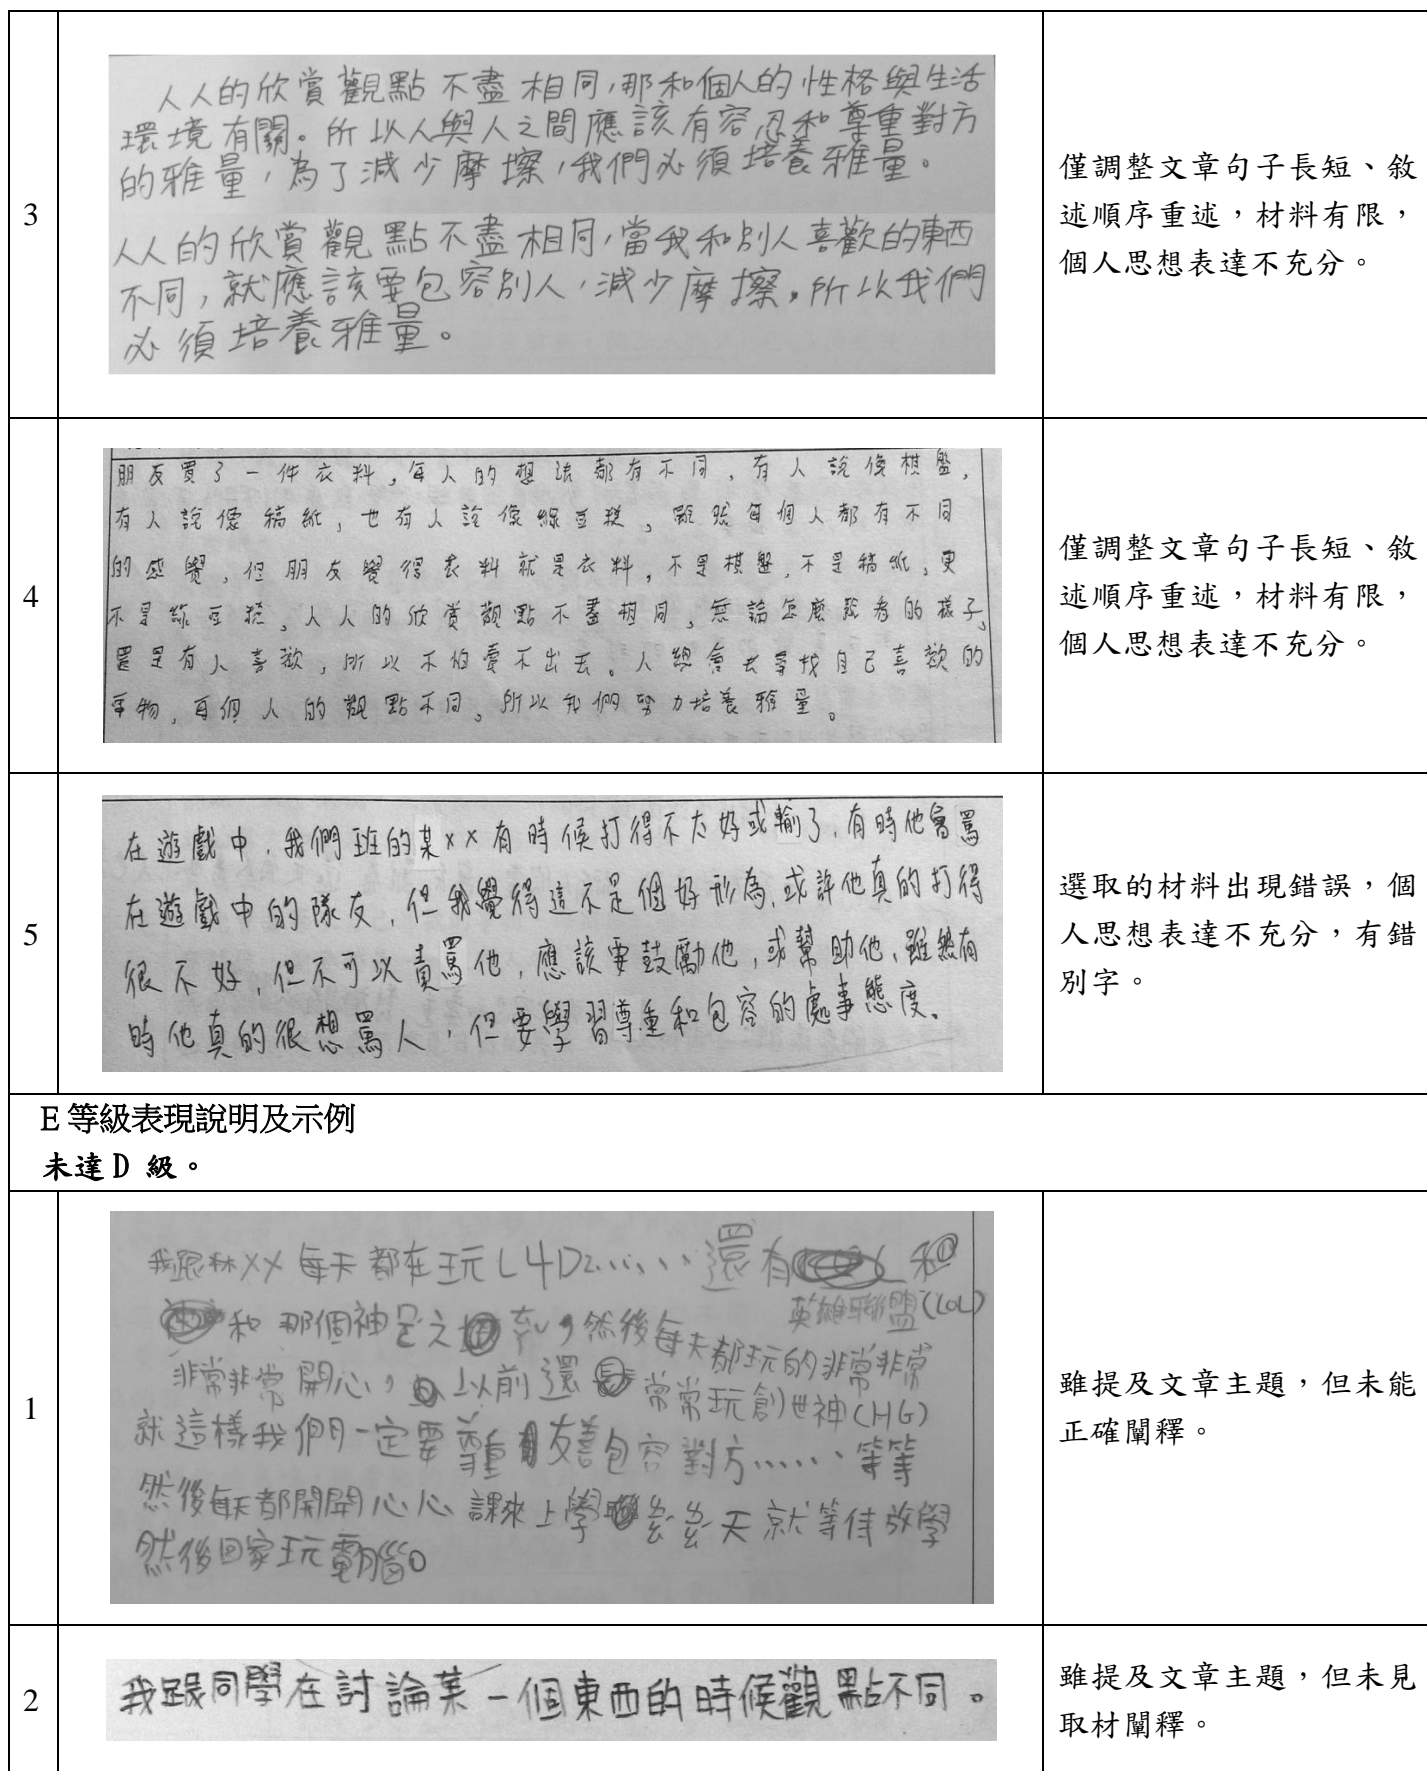 3
人人的欣賞觀點不盡相同,那和個人的性格與生活
環境有關。所以人與人之間應該有容忍和尊重對方
的雅量,為了減少摩擦,我們必須培養雅量。
人人的欣賞觀點不盡相同,當我和別人喜歡的東西
不同,就應該要包容別人,減少摩擦。所以我們
必須培養雅量。
僅調整文章句子長短、敘
述順序重述,材料有限,
個人思想表達不充分。
4
朋友買了一件衣料,每人的想法都有不同,有人說像棋盤,
有人說像稿紙,也有人說像綠豆糕。雖然每個人都有不同
的感覺,但朋友覺得衣料就是衣料,不是棋盤,不是稿紙,更
不是綠豆糕。人人的欣賞觀點不盡相同,無論怎麼的樣子,
還是有人喜歡,所以不怕賣不出去。人總會去尋找自己喜歡的
事物,每個人的觀點不同。所以我們努力培養雅量。
僅調整文章句子長短、敘
述順序重述,材料有限,
個人思想表達不充分。
5
在遊戲中,我們班的某××有時候打得不太好或輸了,有時他會罵
在遊戲中的隊友,但我覺得這不是個好形為,或許他真的打得
很不好,但不可以責罵他,應該要鼓勵他,或幫助他,雖然有
時他真的很想罵人,但要學習尊重和包容的處事態度。
選取的材料出現錯誤,個
人思想表達不充分,有錯
別字。
E 等級表現說明及示例
未達 D 級。
1
我跟林××每天都在玩L4D2……還有和
英雄聯盟(LOL)
和那個神之,然後每天都玩的非常非常
非常非常開心,以前還常常玩創世神(HG)
就這樣我們一定要尊重友善包容對方……等等
然後每天都開開心心課來上學天就等待放學
然後回家玩電腦。
雖提及文章主題,但未能
正確闡釋。
2
我跟同學在討論某一個東西的時候觀點不同。
雖提及文章主題,但未見
取材闡釋。